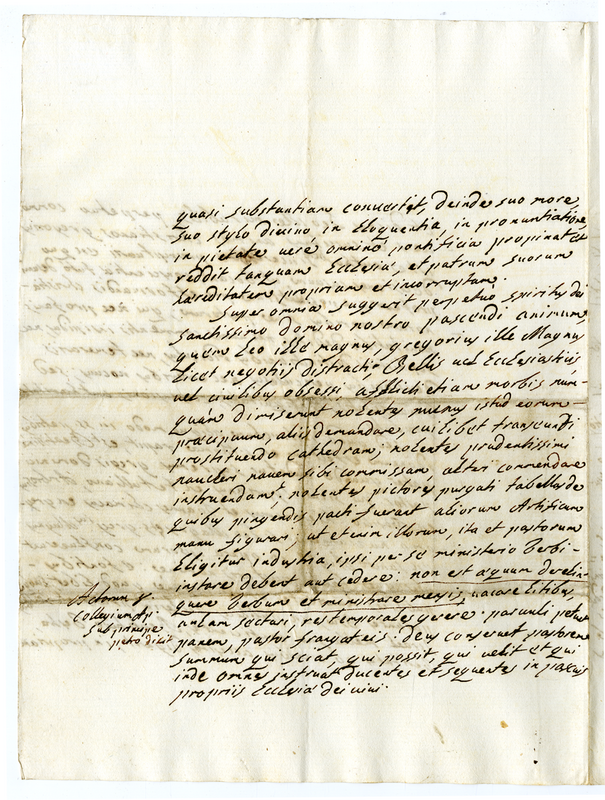 quasi substantiam convertit, deinde suo more,
suo stylo divino in Eloquentia, in pronuntiatione,
in pietate veré omninó pontificia propinat et
reddit tanquam Ecclesiæ, et patrum suorum
hæreditatem propriam et incorruptam.
Super omnia suggerit perpetuó spiritus dei
sanctissimo domino nostro pascendi animum,
quem leo ille magnus, gregorius ille Magnus
licet negotiis distracti Bellis vel Ecclesiasticis
vel civilibus obsessi, afflicti etiam morbis nun-
quám dimiserunt nolentes munus istud eorum
præcipuum, aliis demandare, cuilibet transeundi
prostituendo cathedram; nolentes prudentissimi
naucleri navem sibi commissam alteri commendare
instruendam, nolentes pictores purgati tabellas de
quibus pingendis pacti fuerant aliorum Artificum
manu figurari; ut etenim illorum, ita et pastorum
Eligitur industria, ipsi per se ministerio verbi
instare debent aut cedere: non est æquum derelin-
quere verbum et ministrare mensis, vacare litibus,
aulam sectari, res temporales gerere. parvuli petunt
panem, pastor frangat eis. deus conservet pastorem
summum qui sciat, qui possit, qui velit et qui
inde omnes instruat ducentes et sequentes in pascuis
propriis Ecclesiæ dei vivi.
Actorum 6.
Collegium Apl.
sub principe
petro dixit